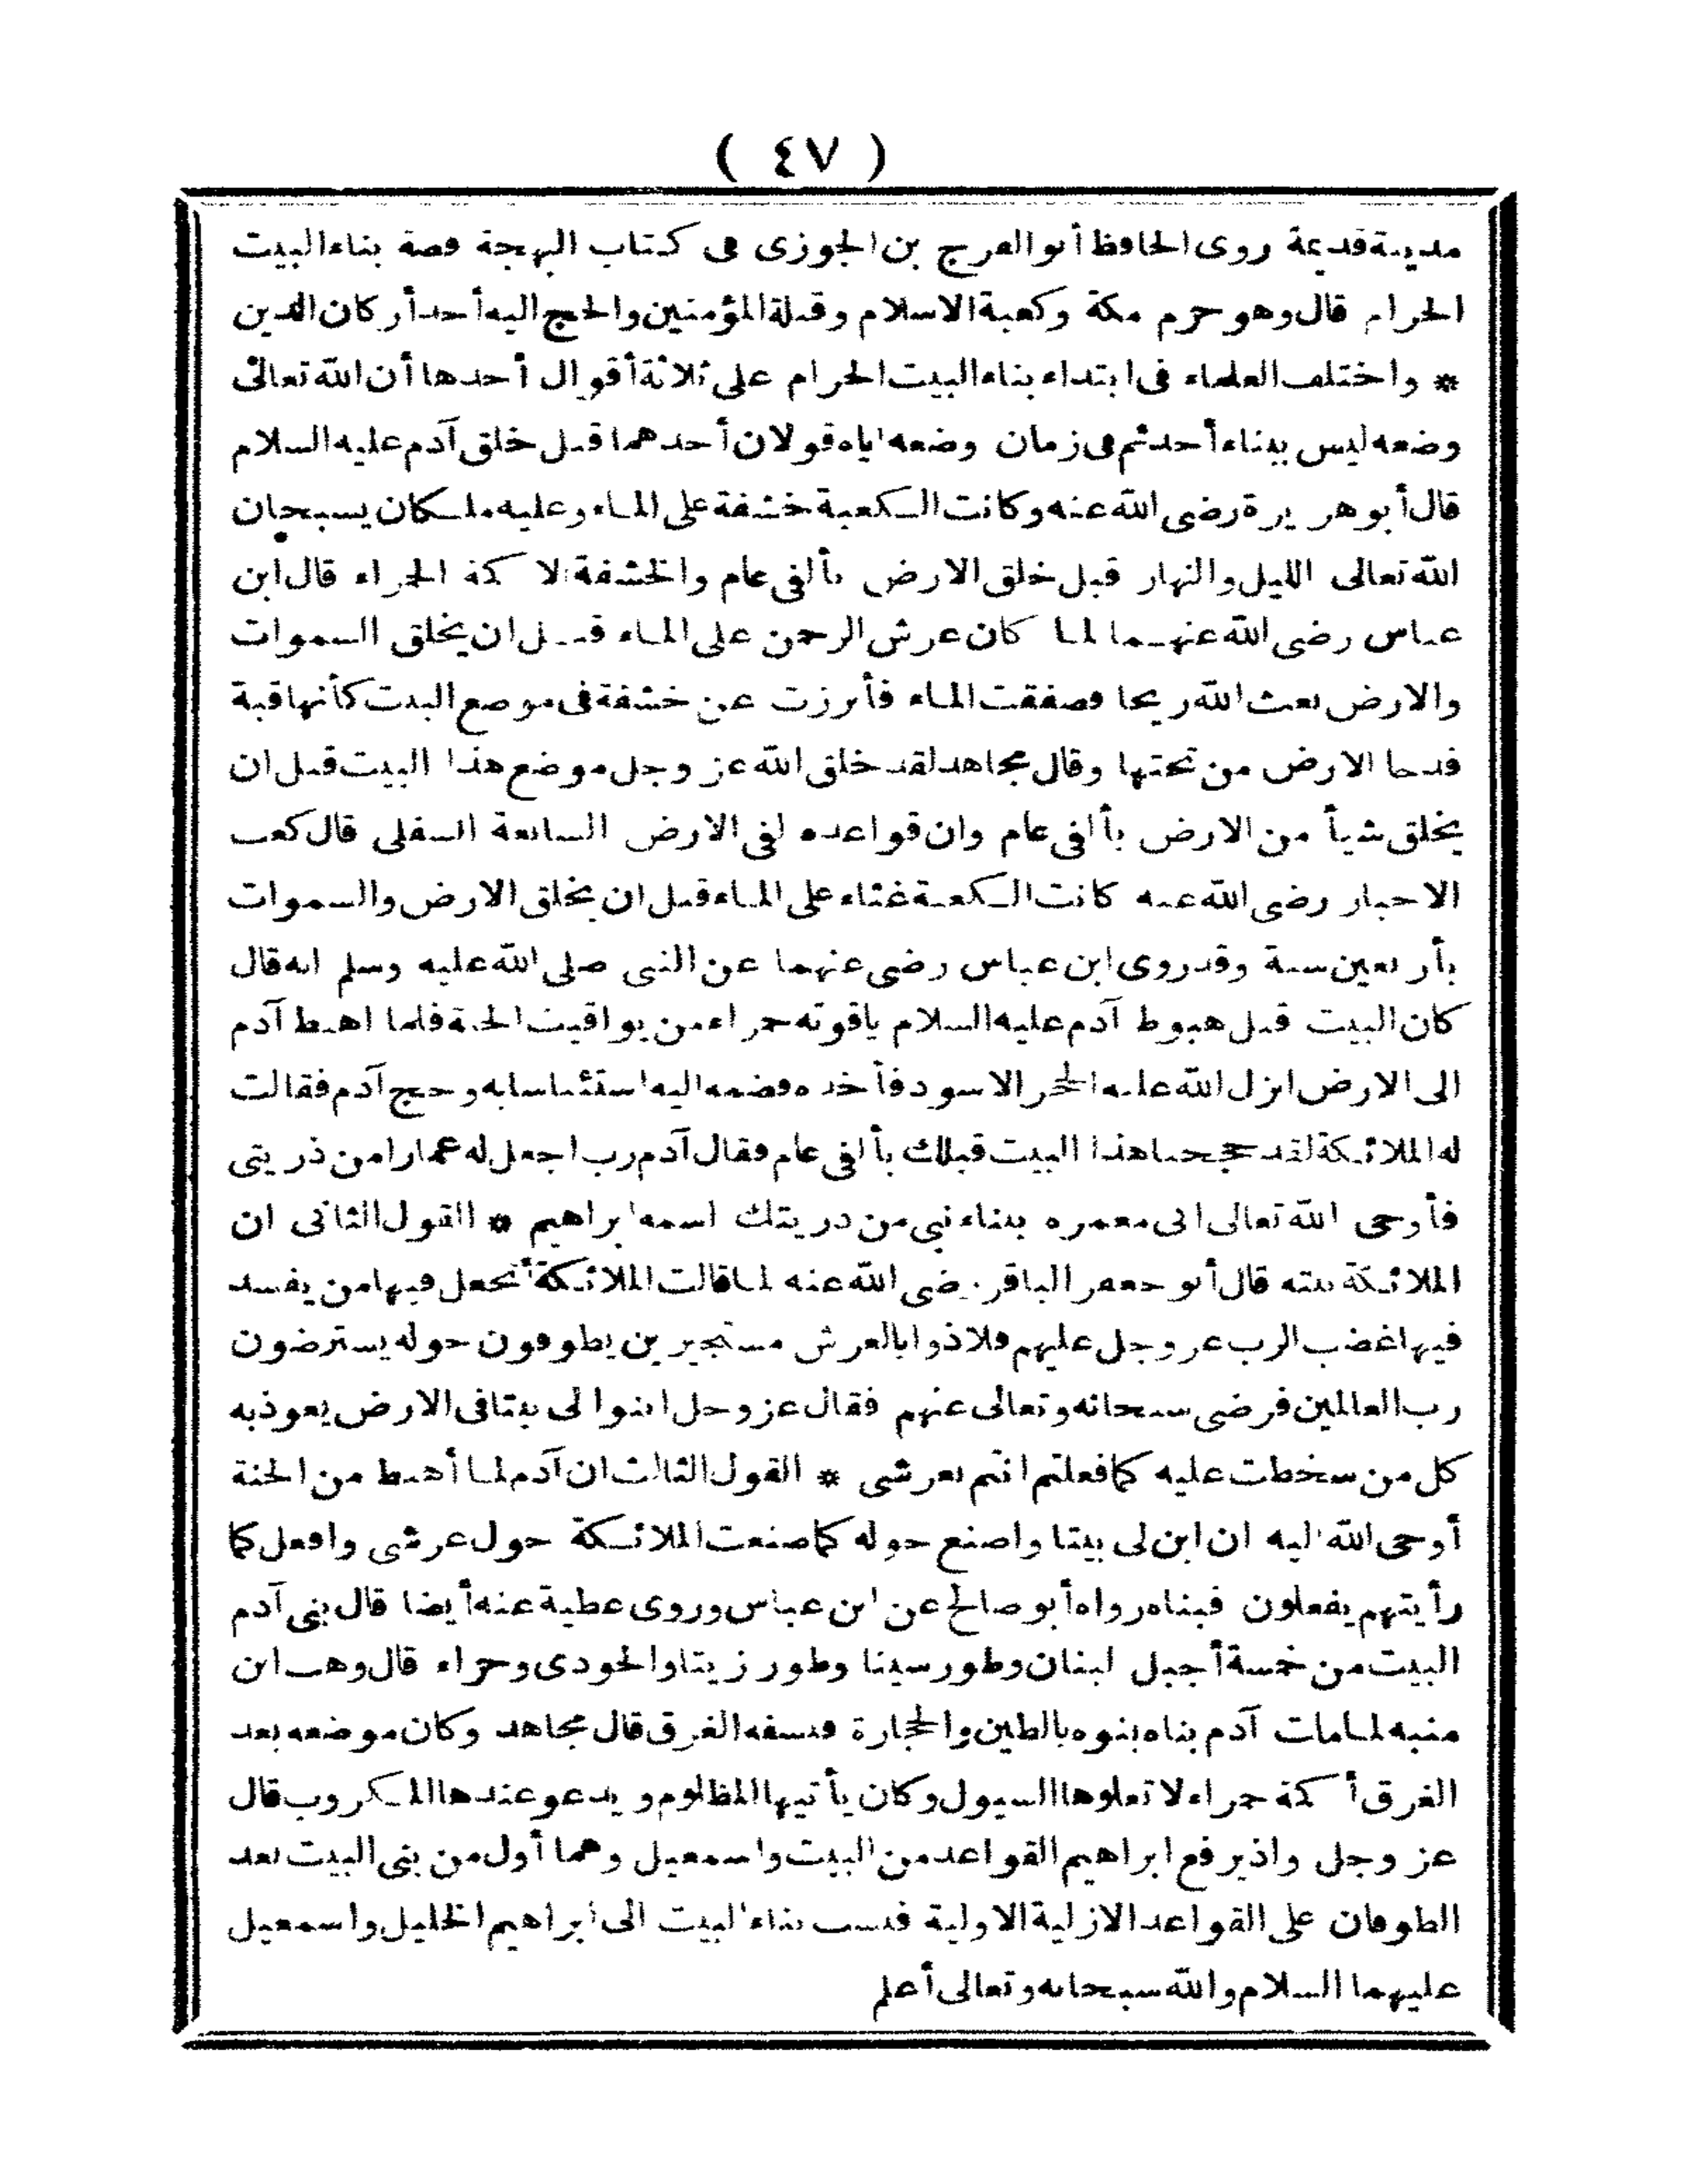 ( ٤٧ )
مدينة قديمة روى الحافظ أبو الفرج بن الجوزى فى كتاب البهجة قصة بناء البيت
الحرام قال وهو حرم مكة وكعبة الاسلام وقبلة المؤمنين والحج اليه أحد أركان الدين
* واختلف العلماء فى ابتداء بناء البيت الحرام على ثلاثة أقوال أحدها أن الله تعالى
وضعه ليس ببناء أحد ثم فى زمان وضعه اياه قولان أحدهما قبل خلق آدم عليه السلام
قال أبو هريرة رضى الله عنه وكانت الكعبة خشفة على الماء وعليه ملكان يسبحان
الله تعالى الليل والنهار قبل خلق الارض بألفى عام والخشفة الاكمة الحمراء قال ابن
عباس رضى الله عنهما لما كان عرش الرحمن على الماء قبل ان يخلق السموات
والارض بعث الله ريحا فصفقت الماء فأبرزت عن خشفة فى موضع البيت كأنها قبة
فدحا الارض من تحتها وقال مجاهد لقد خلق الله عز وجل موضع هذا البيت قبل ان
يخلق شيأ من الارض بألفى عام وان قواعده لفى الارض السابعة السفلى قال كعب
الاحبار رضى الله عنه كانت الكعبة غثاء على الماء قبل ان يخلق الارض والسموات
بأربعين سنة وقد روى ابن عباس رضى عنهما عن النبى صلى الله عليه وسلم انه قال
كان البيت قبل هبوط آدم عليه السلام ياقوته حمراء من يواقيت الجنة فلما اهبط آدم
الى الارض انزل الله عليه الحجر الاسود فأخذه وضمه اليه استئناسا به وحج آدم فقالت
له الملائكة لقد حججنا هذا البيت قبلك بألفى عام فقال آدم رب اجعل له عمارا من ذريتى
فأوحى الله تعالى انى معمره ببناء نبى من ذريتك اسمه ابراهيم * القول الثانى ان
الملائكة بنته قال أبو جعفر الباقر رضى الله عنه لما قالت الملائكة أتجعل فيها من يفسد
فيها غضب الرب عز وجل عليهم فلاذوا بالعرش مستجيرين يطوفون حوله يسترضون
رب العالمين فرضى سبحانه وتعالى عنهم فقال عز وجل ابنوا لى بيتا فى الارض يعوذ به
كل من سخطت عليه كما فعلتم انتم بعرشى * القول الثالث ان آدم لما أهبط من الجنة
أوحى الله اليه ان ابن لى بيتا واصنع حوله كما صنعت الملائكة حول عرشى وافعل كما
رأيتهم يفعلون فبناه رواه أبو صالح عن ابن عباس وروى عطية عنه أيضا قال بنى آدم
البيت من خمسة أجبل لبنان وطور سينا وطور زيتا والجودى وحراء قال وهب ابن
منبه لما مات آدم بناه بنوه بالطين والحجارة فنسفه الغرق قال مجاهد وكان موضعه بعد
الغرق أكمة حمراء لا تعلوها السيول وكان يأتيها المظلوم ويدعو عندها المكروب قال
عز وجل واذ يرفع ابراهيم القواعد من البيت واسمعيل وهما أول من بنى البيت بعد
الطوفان على القواعد الازلية الاولية فنسب بناء البيت الى ابراهيم الخليل واسمعيل
عليهما السلام والله سبحانه وتعالى أعلم